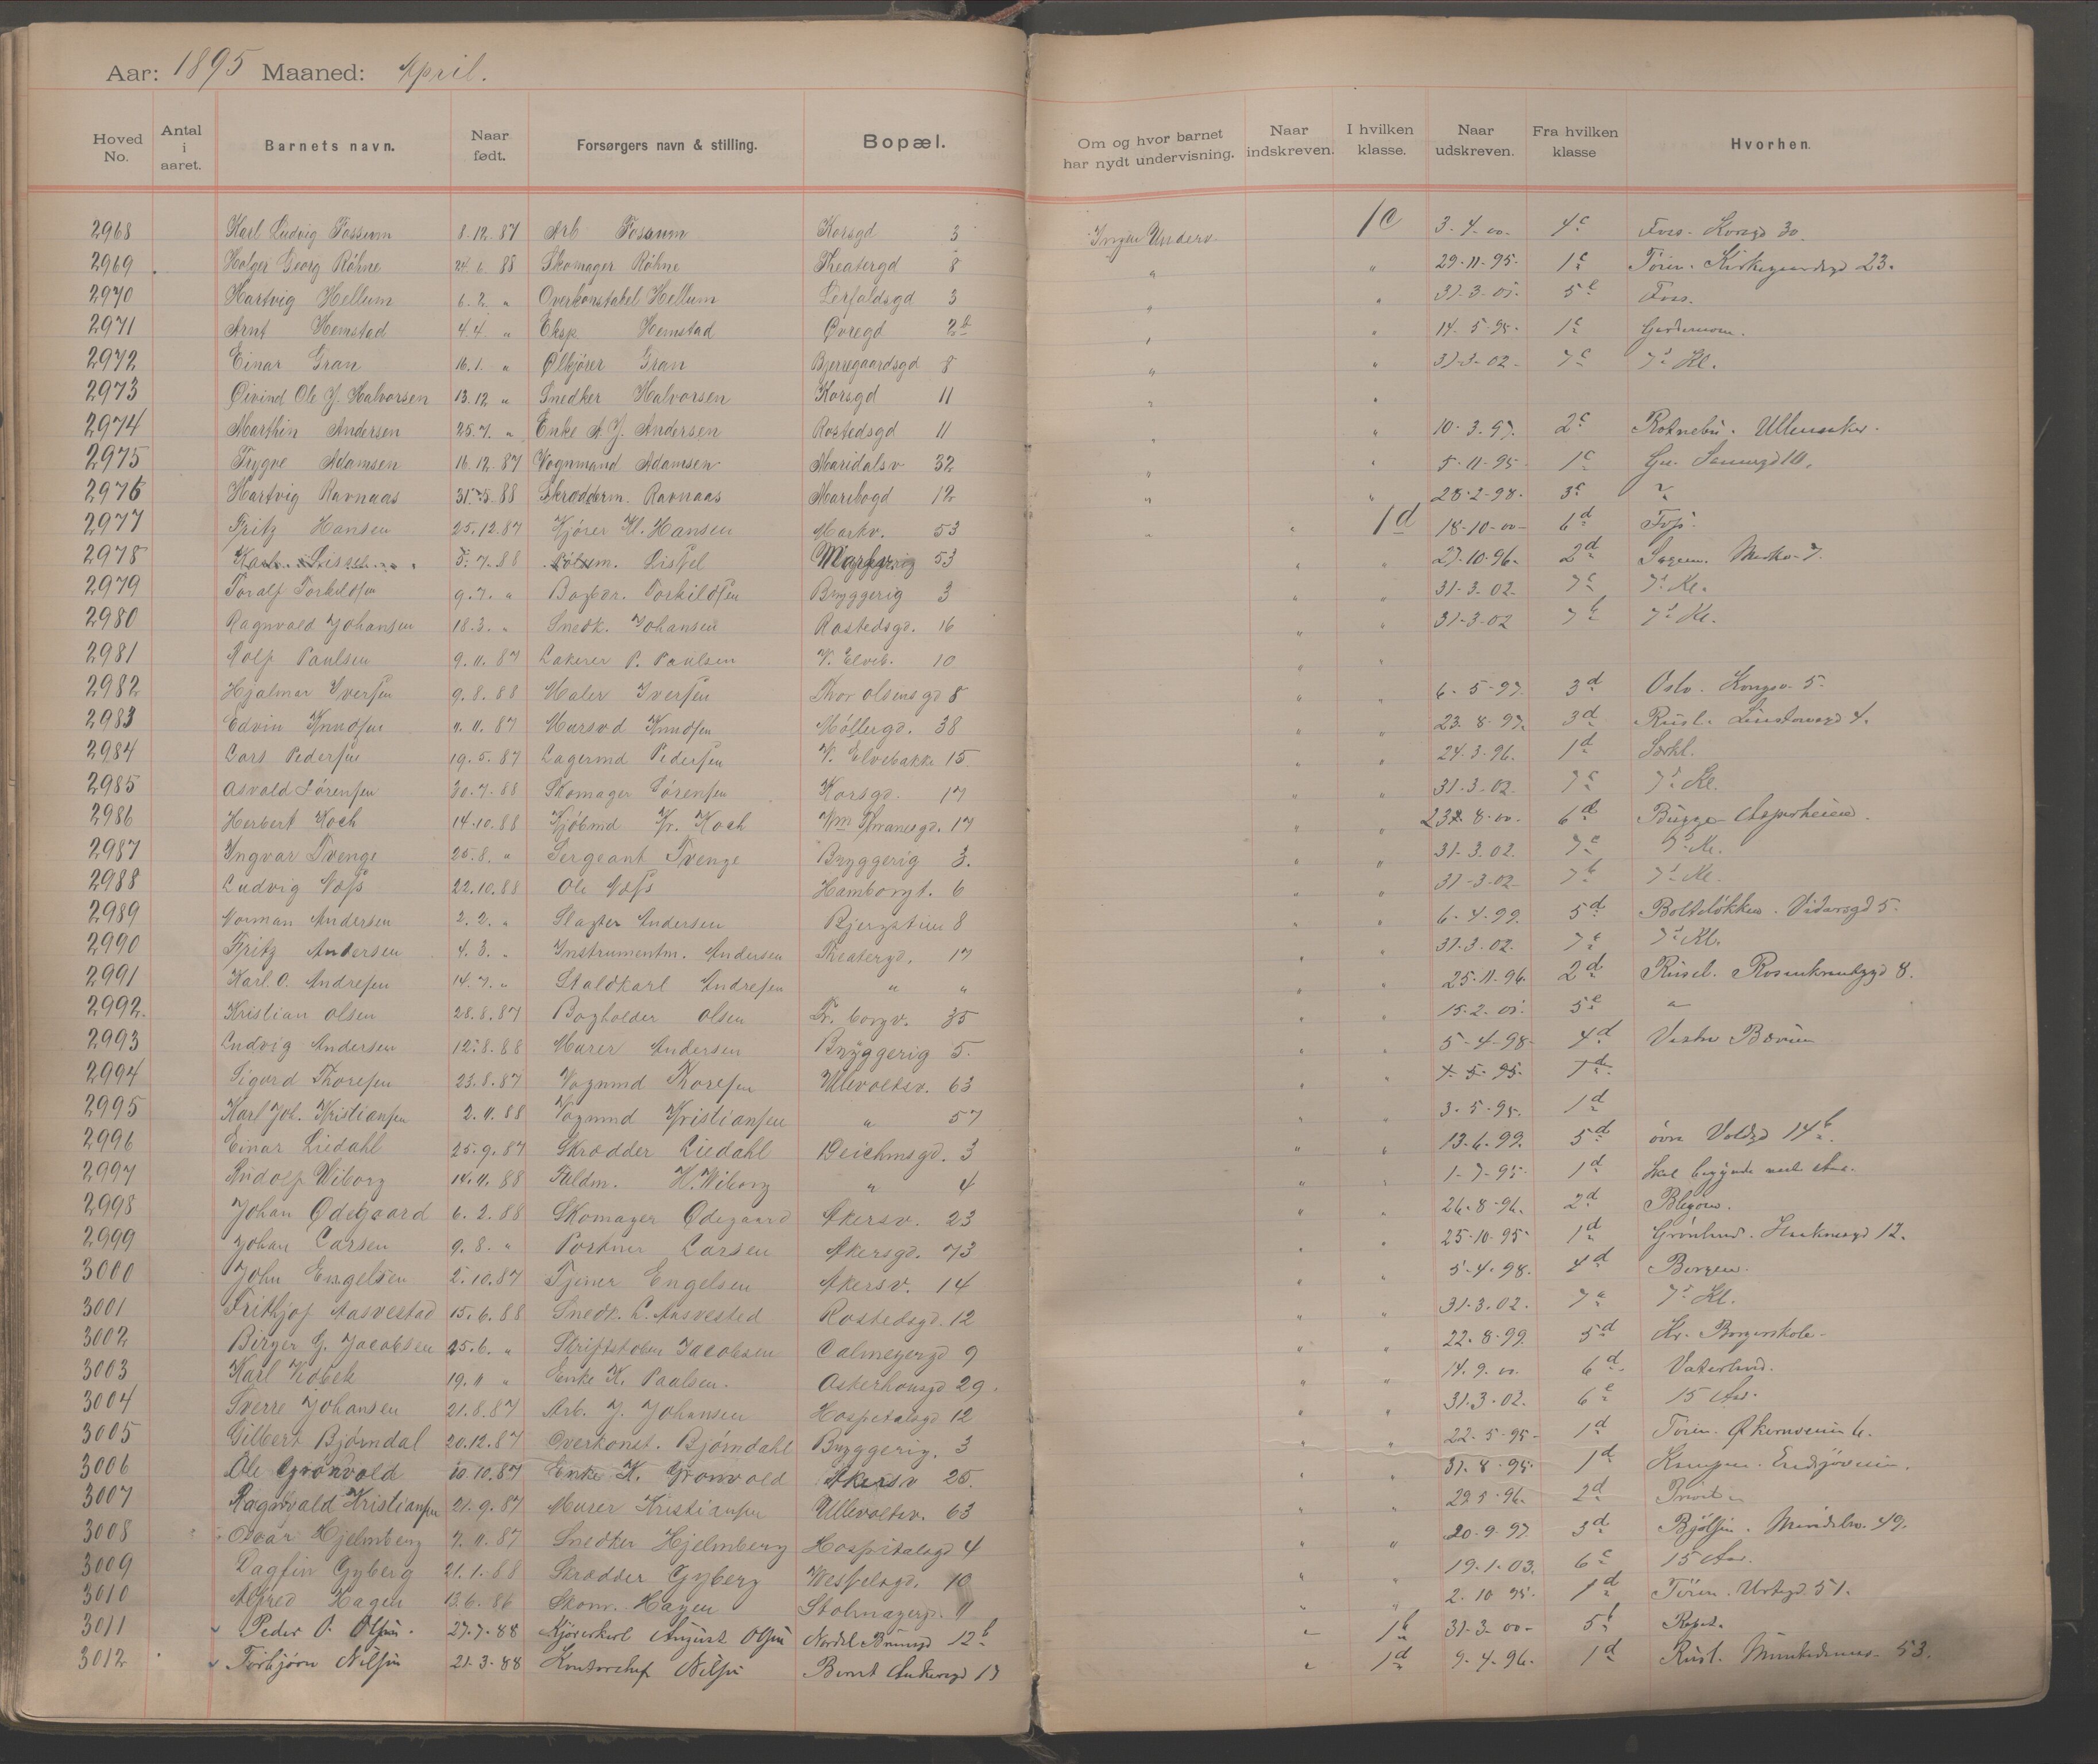 Aar: 1895 Maaned: April.
Hoved No. Antal i aaret. Barnets navn. Naar født. Forsørgers navn & stilling. Bopæl. Om og hvor barnet har nydt undervisning. Naar indskreven. I hvilken klasse. Naar udskreven. Fra hvilken klasse Hvorhen.
2968 Karl Ludvig Fossum 8.12.87 Arb Fossum Korsgd 3 Ingen Underv. 1c 3-4-00- 4c Foss. Korsgd 30.
2969 Holger Georg Røhne 24 6 88 Skomager Røhne Theatergd 8 " " 29-11-95- 1c Tøien. Kirkegaardsgd 23.
2970 Hartvig Hellum 6.2. " Overkonstabel Hellum Lerfaldsgd 3 " " 31-3-01- 5c Foss.
2971 Arnt Hemstad 4.4. " Eksp Hemstad Øvregd 2b " " 14-5-95- 1c
2972 Einar Gran 16.1. " Ølkjører Gran Bjerregaardsgd 8 " " 31-3-02- 7c 7d Kl.
2973 Øivind Ole J. Halvorsen 13.12 " Snedker Halvorsen Korsgd 11 " "
2974 Marthin Andersen 25.7. " Enke A. J. Andersen Rostedsgd 11 " " 10-3-97. 2c Ullensaker.
2975 Trygve Adamsen 16.12.87 Vognmand Adamsen Maridalsv 32 " " 5-11-95- 1c
2976 Hartvig Ravnaas 31.5.88 Skrædderm. Ravnaas Maribogd 12 " " 28-2-98. 3c
2977 Fritz Hansen 25.12.87 Kjører Kl. Hansen Markv. 53 " " 1d 18-10-00- 6d Foss.
2978 5.7.88 Lissel Markv. 53 " " 27-10-96- 2d Sagene. Markv. 7.
2979 Toralf Torkildsen 9.7. " Bagber. Torkildsen Bryggerig 3 " " 31-3-02. 7c 7d Kl.
2980 Ragnvald Johansen 18.3. " Snedk. Johansen Rostedsgd. 16 " " 31-3-02 7b 7d Kl.
2981 Rolf Paulsen 9.11.87 Lakerer P. Paulsen V. Elveb. 10 " "
2982 Hjalmar Iversen 9.8.88 Maler Iversen Thor olsensgd 8 " " 6-5-97. 3d Oslo. Kongsv. 5-
2983 Edvin Knudsen 11.11.87 Mursvd Knudsen Møllergd. 38 " " 23.8-97. 3d Rusl. Linstowsgd 4.
2984 Lars Pedersen 19.5.87 Lagermd Pedersen V. Elvebakke 15. " " 24-3-96. 1d Særkl.
2985 Asvald Sørensen 30.7.88 Skomager Sørensen Korsgd. 17 " " 31-3-02. 7c 7d Kl.
2986 Herbert Koch 14.10.88 Kjøbmd Kr. Koch Vm Thranesgd. 17 " " 23-8-00. 6d Bugge- Asperheim.
2987 Yngvar Tvenge 25.8. " Sergeant Tvenge Bryggerig 3. " " 31-3.02. 7c 7d Kl.
2988 Ludvig Næss 22.10.88 Ole Næss Hamborgt. 6 " " 31-3-02- 7b 7d Kl.
2989 Norman Andersen 2.2. " Slagter Andersen Bjergstien 8 " " 6-4-99. 5d Bolteløkken. Vidarsgd 5.
2990 Fritz Andersen 4.3. " Instrumentm. Andersen Theatergd. 17 " " 31-3-02. 7c 7d Kl.
2991 Karl O. Andresen 14.7. " Staldkarl Andresen " " " " 25-11-96. 2d Rusel. Rosenkrantzgd 8.
2992. Kristian Olsen 28.8.87 Bogholder Olsen Fr. borgv. 35 " " 15-2-01- 5c
2993 Ludvig Andersen 12.8.88 Murer Andersen Bryggerig 5. " " 5-4-98- 4d Vestre Bærum
2994 Sigurd Thoresen 23.8.87 Vognmd Thoresen Ullevoldsv. 63 " " 7-5-95- 1d
2995 Karl Joh. Kristiansen 2.11.88 Vognmd Kristiansen " 57 " " 3-5-95. 1d
2996 Einar Liedahl 25.9.87 Skrædder Liedahl Deichmsgd. 3 " " 13-6-99. 5d øvre Voldgd 14b.
2997 Rudolf Wiborg 14.11.88 Fuldm. H. Wiborg " 4 " " 1-7-95- 1d Skal begynde næste Aar.
2998 Johan Ødegaard 6.2.88 Skomager Ødegaard Akersv. 23 " " 26-8-96. 2d
2999 Johan Larsen 9.8. " Portner Larsen Akersgd. 73 " " 25-10-95- 1d Grønland. Haakonsgd 12.
3000 John Engelsen 2.10.87 Tjener Engelsen Akersv. 14 " " 5-4-98. 4d Bergen.
3001 Frithjof Aasvestad 15.6.88 Snedk. L. Aasvestad Rostedsgd. 12 " " 31-3-02. 7a 7d Kl.
3002 Birger G. Jacobsen 25.6. " Skriftstøber Jacobsen Calmeyergd 9 " " 22-8-99. 5d Kr. Borgerskole-
3003 Karl Kobek 19.11 " Enke K. Paulsen. Akershusgd 29. " " 14-9-00. 6d Vaterland.
3004 Sverre Johansen 21.8.87 Arb. J. Johansen Hospitalsgd 12 " " 31-3-02. 6c 15 Aar.
3005 Gilbert Bjørndal 20.12.87 Overkonst. Bjørndahl Bryggerig. 3 " " 22-5-95- 1d Tøien. Økernveien 6.
3006 Ole Grønvold 10.10.87 Enke K. Grønvold Akersv 25. " " 31-8-95- 1d Kampen. Ensjøveien.
3007 Ragnvald Kristiansen 21.9.87 Murer Kristiansen Ullevoldsv. 63 " " 29-5-96. 2d Privat-
3008 Oscar Hjelmberg 7.11.87 Snedker Hjelmberg Hospitalsgd 4 " " 20-9-97 3d Bjølsen. Maridalsv. 49.
3009 Dagfin Gyberg 21.1.88 Skrædder Gyberg Wesselsgd. 10 " " 19-1-03. 6c 15 Aar.
3010 Alfred Hagen 13.6.86 Skom. Hagen Stolmagergd. 11 " " 2-10-95- 1d Tøien. Urtegd 51.
3011 Peder O. Olsen. 27.7-88 Kjørerkarl August Olsen Nordal Brunsgd 12b " 1b 31-3-00- 5b
3012 Torbjørn Nilsen 21-3-88 Kontorchef Nilsen Bernt Ankersgd 17 " 1d 9-4-96. 1d Rusl. Munkedamsv- 53.